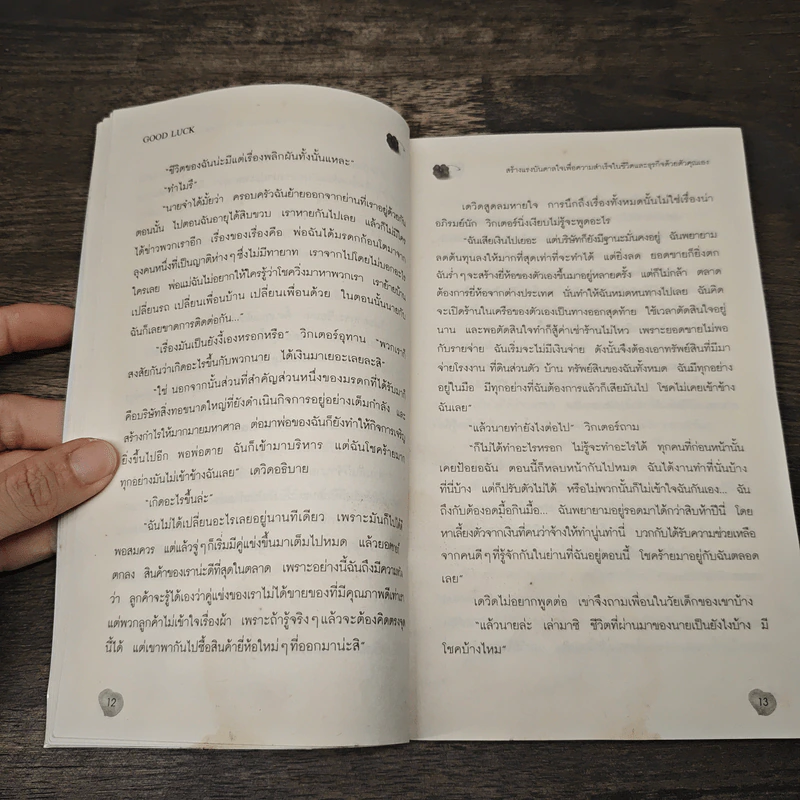 GOOD LUCK
"ชีวิตของฉันน่ะมีแต่เรื่องพลิกผันทั้งนั้นแหละ"
"ทำไมรึ"
"นายจำได้มั้ยว่า ครอบครัวฉันย้ายออกจากย่านที่เราอยู่ด้วยกัน
ตอนนั้น ไปตอนฉันอายุได้สิบขวบ เราหายกันไปเลย แล้วก็ไม่มีใคร
ได้ข่าวพวกเราอีก เรื่องของเรื่องคือ พ่อฉันได้มรดกก้อนโตมาจาก
ลุงคนหนึ่งที่เป็นญาติห่างๆ ซึ่งไม่มีทายาท เราจากไปโดยไม่บอกอะไร
ใครเลย พ่อแม่ฉันไม่อยากให้ใครรู้ว่าโชควิ่งมาหาพวกเรา เราย้ายบ้าน
เปลี่ยนรถ เปลี่ยนเพื่อนบ้าน เปลี่ยนเพื่อนด้วย ในตอนนั้นนายกับ
ฉันก็เลยขาดการติดต่อกัน..."
"เรื่องมันเป็นยังงี้เองหรอกหรือ" วิกเตอร์อุทาน "พวกเราก็
สงสัยกันว่าเกิดอะไรขึ้นกับพวกนาย ได้เงินมาเยอะเลยละสิ"
"ใช่ นอกจากนั้นส่วนที่สำคัญส่วนหนึ่งของมรดกที่ได้รับมาก็
คือบริษัทสิ่งทอขนาดใหญ่ที่ยังดำเนินกิจการอยู่อย่างเต็มกำลัง และ
สร้างกำไรให้มากมายมหาศาล ต่อมาพ่อของฉันก็ยังทำให้กิจการเจริญ
ยิ่งขึ้นไปอีก พอพ่อตาย ฉันก็เข้ามาบริหาร แต่ฉันโชคร้ายมาก
ทุกอย่างมันไม่เข้าข้างฉันเลย" เดวิดอธิบาย
"เกิดอะไรขึ้นล่ะ"
"ฉันไม่ได้เปลี่ยนอะไรเลยอยู่นานทีเดียว เพราะมันก็ไปได้ดี
พอสมควร แต่แล้วจู่ๆ ก็เริ่มมีคู่แข่งขึ้นมาเต็มไปหมด แล้วยอดขายก็
ตกลง สินค้าของเราน่ะดีที่สุดในตลาด เพราะอย่างนี้ฉันถึงมีความหวัง
ว่า ลูกค้าจะรู้ได้เองว่าคู่แข่งของเราไม่ได้ขายของที่มีคุณภาพดีเท่าเรา
แต่พวกลูกค้าไม่เข้าใจเรื่องผ้า เพราะถ้ารู้จริงๆ แล้วจะต้องคิดตรงจุด
นี้ได้ แต่เขาพากันไปซื้อสินค้ายี่ห้อใหม่ๆ ที่ออกมาน่ะสิ"
12
สร้างแรงบันดาลใจเพื่อความสำเร็จในชีวิตและธุรกิจด้วยตัวคุณเอง
เดวิดสูดลมหายใจ การนึกถึงเรื่องทั้งหมดนั้นไม่ใช่เรื่องน่า
อภิรมย์นัก วิกเตอร์นิ่งเงียบไม่รู้จะพูดอะไร
"ฉันเสียเงินไปเยอะ แต่บริษัทก็ยังมีฐานะมั่นคงอยู่ ฉันพยายาม
ลดต้นทุนลงให้มากที่สุดเท่าที่จะทำได้ แต่ยิ่งลด ยอดขายก็ยิ่งตก
ฉันร่ำๆ จะสร้างยี่ห้อของตัวเองขึ้นมาอยู่หลายครั้ง แต่ก็ไม่กล้า ตลาด
ต้องการยี่ห้อจากต่างประเทศ นั่นทำให้ฉันหมดหนทางไปเลย ฉันคิด
จะเปิดร้านในเครือของตัวเองเป็นทางออกสุดท้าย ใช้เวลาตัดสินใจอยู่
นาน และพอตัดสินใจทำก็สู้ค่าเช่าร้านไม่ไหว เพราะยอดขายไม่พอ
กับรายจ่าย ฉันเริ่มจะไม่มีเงินจ่าย ดังนั้นจึงต้องเอาทรัพย์สินที่มีมา
จ่ายโรงงาน ที่ดินส่วนตัว บ้าน ทรัพย์สินของฉันทั้งหมด ฉันมีทุกอย่าง
อยู่ในมือ มีทุกอย่างที่ฉันต้องการแล้วก็เสียมันไป โชคไม่เคยเข้าข้าง
ฉันเลย"
"แล้วนายทำยังไงต่อไป" วิกเตอร์ถาม
"ก็ไม่ได้ทำอะไรหรอก ไม่รู้จะทำอะไรได้ ทุกคนที่ก่อนหน้านั้น
เคยป้อยอฉัน ตอนนี้ก็หลบหน้ากันไปหมด ฉันได้งานทำที่นั่นบ้าง
ที่นี่บ้าง แต่ก็ปรับตัวไม่ได้ หรือไม่พวกนั้นก็ไม่เข้าใจฉันกันเอง... ฉัน
ถึงกับต้องอดมื้อกินมื้อ... ฉันพยายามอยู่รอดมาได้กว่าสิบห้าปีนี่ โดย
หาเลี้ยงตัวจากเงินที่คนว่าจ้างให้ทำนู่นทำนี่ บวกกับได้รับความช่วยเหลือ
จากคนดีๆ ที่รู้จักกันในย่านที่ฉันอยู่ตอนนี้ โชคร้ายมาอยู่กับฉันตลอด
เลย"
เดวิดไม่อยากพูดต่อ เขาจึงถามเพื่อนในวัยเด็กของเขาบ้าง
"แล้วนายล่ะ เล่ามาซิ ชีวิตที่ผ่านมาของนายเป็นยังไงบ้าง มี
โชคบ้างไหม"
13